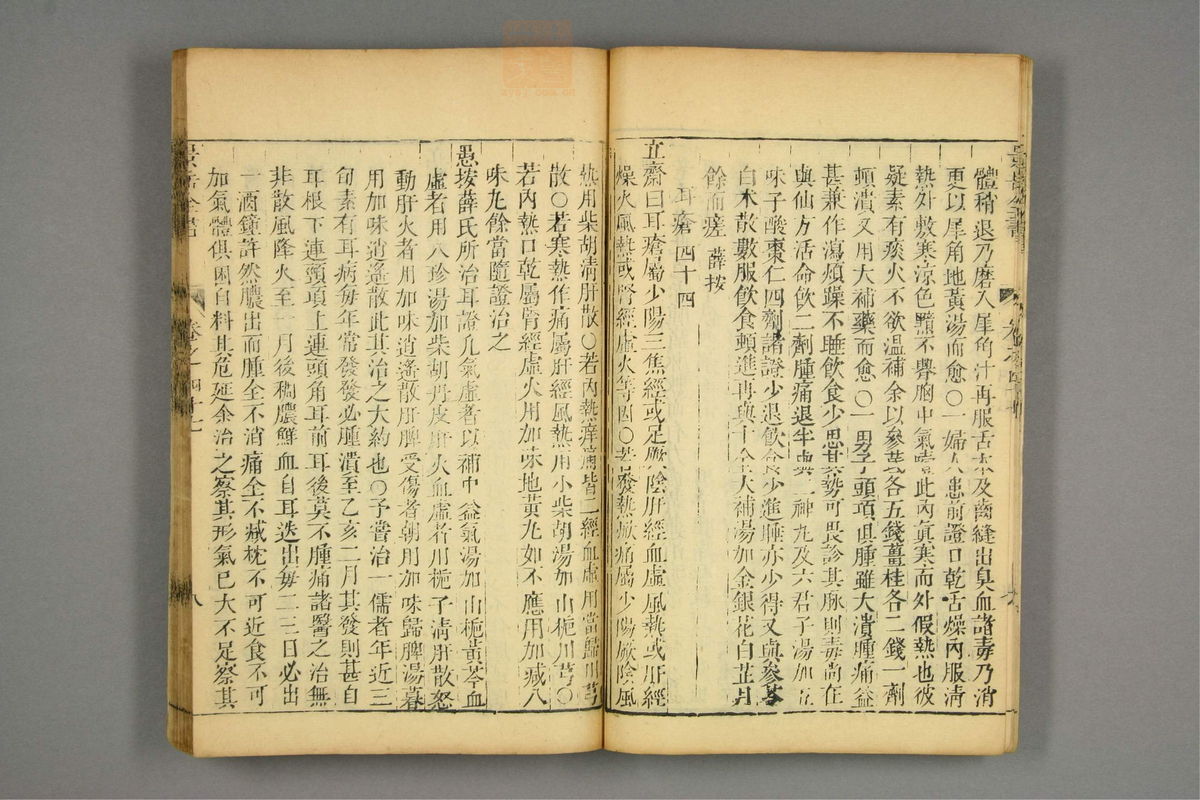 體稍退乃磨入犀角汁再服舌本及齒縫出臭血諸毒乃消
更以犀角地黃湯而愈○一婦人患前證口乾舌燥內服清
熱外敷寒涼色黯不臖胸中氣噎此內真寒而外假熱也彼
疑素有痰火不欲溫補余以參茋各五錢薑桂各二錢一劑
頓潰又用大補藥而愈○一男子頭項俱腫雖大潰腫痛益
甚兼作瀉煩躁不睡飲食少思其勢可畏診其脉則毒尚在
與仙方活命飲二劑腫痛退半與二神丸及六君子湯加五
味子酸棗仁四劑諸證少退飲食少進睡亦少得又與參苓
白术散數服飲食頓進再與十全大補湯加金銀花白芷月
餘而瘥 薛按
耳瘡 四十四
立齋曰耳瘡屬少陽三焦經或足厥陰肝經血虛風熱或肝經
燥火風熱或腎經虛火等因○若發熱焮痛屬少陽厥陰風
熱用柴胡清肝散○若內熱癢痛皆二經血虛用當歸川芎
散○若寒熱作痛屬肝經風熱用小柴胡湯加山梔川芎○
若內熱口乾屬腎經虛火用加味地黃丸如不應用加減八
味丸餘當隨證治之
愚按薛氏所治耳證凡氣虛者以補中益氣湯加山梔黃芩血
虛者用八珍湯加柴胡丹皮肝火血虛者用梔子清肝散怒
動肝火者用加味逍遙散肝脾受傷者朝用加味歸脾湯暮
用加味逍遙散此其治之大約也○予嘗治一儒者年近三
旬素有耳病每年常發發必腫潰至乙亥二月其發則甚自
耳根下連頸項上連頭角耳前耳後莫不腫痛諸醫之治無
非散風降火至一月後稠膿鮮血自耳迭出每二三日必出
一酒鐘許然膿出而腫全不消痛全不減枕不可近食不可
加氣體俱困自料其危延余治之察其形氣已大不足察其
景岳全書
卷之四十七
八